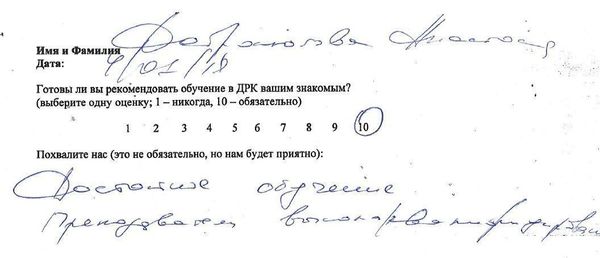 Имя и Фамилия Анастасия
Дата: 4/01/18
Готовы ли вы рекомендовать обучение в ДРК вашим знакомым?
(выберите одну оценку; 1 – никогда, 10 – обязательно)
1 2 3 4 5 6 7 8 9 10
Похвалите нас (это не обязательно, но нам будет приятно):
Достойное обучение
Преподаватель